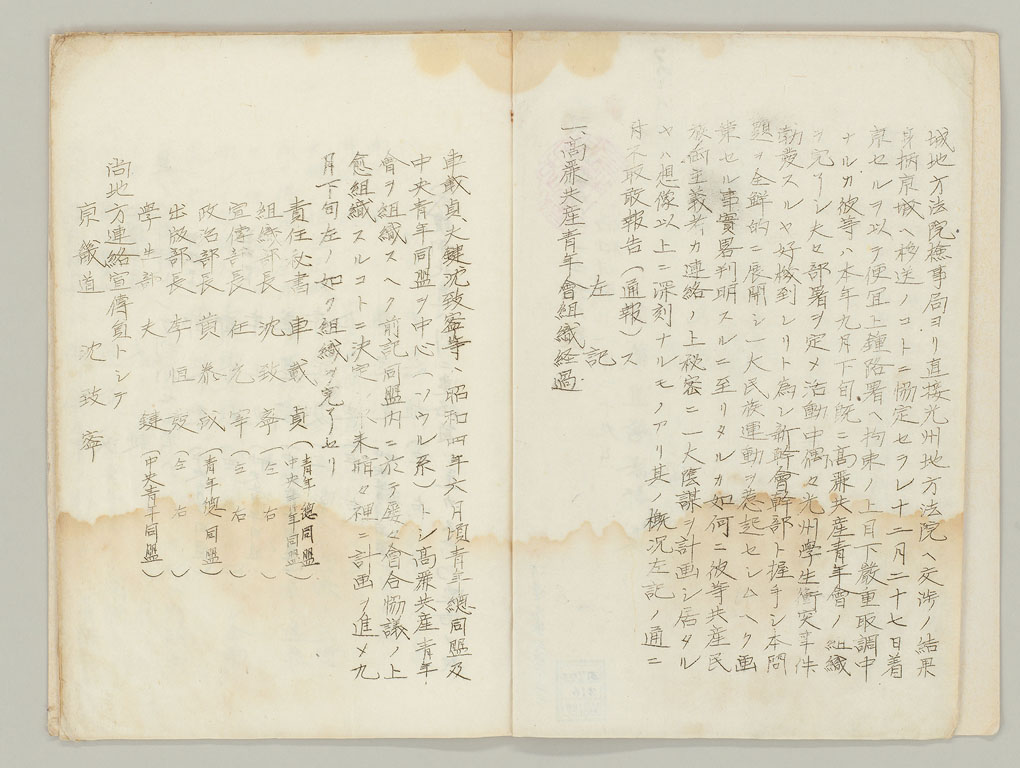 城地方法院検事局ヨリ直接光州地方法院ヘ交渉ノ結果
身柄京城ヘ移送ノコトニ協定セラレ十二月二十七日着
京セルヲ以テ便宜上鍾路署ヘ拘束ノ上目下厳重取調中
ナルカ彼等ハ本年九月下旬既ニ高麗共産青年會ノ組織
ヲ完了シ夫々部署ヲ定メ活動中偶々光州學生衝突事件
勃發スルヤ好機到レリト為シ新幹會幹部ト握手シ本問
題ヲ全鮮的ニ展開シ一大民族運動ヲ惹起セシムヘク画
策セル事實畧判明スルニ至リタルカ如何ニ彼等共産民
族両主義者カ連絡ノ上秘密ニ一大陰謀ヲ計画シ居タル
ヤハ想像以上ニ深刻ナルモノアリ其ノ概況左記ノ通ニ
有不取敢報告(通報)ス
左記
一、高麗共産青年會組織経過
車載貞、大鍵沈致寧等ハ昭和四年六月頃青年總同盟及
中央青年同盟ヲ中心(ソウル系)トシ高麗共産青年
會ヲ組織スヘク前記同盟内ニ於テ屡々會合協議ノ上
愈組織スルコトニ決定シ爾来暗々裡ニ計画ヲ進メ九
月下旬左ノ如ク組織ヲ完了セリ
責任秘書 車載貞(青年總同盟 中央青年同盟)
組織部長 沈致寧(左右)
宣傳部長 任元宰(左右)
政治部長 黄泰成(青年總同盟)
出版部長 李恒發(左右)
學生部 大鍵(中央青年同盟)
尚地方連絡宣傳員トシテ
京畿道 沈致寧